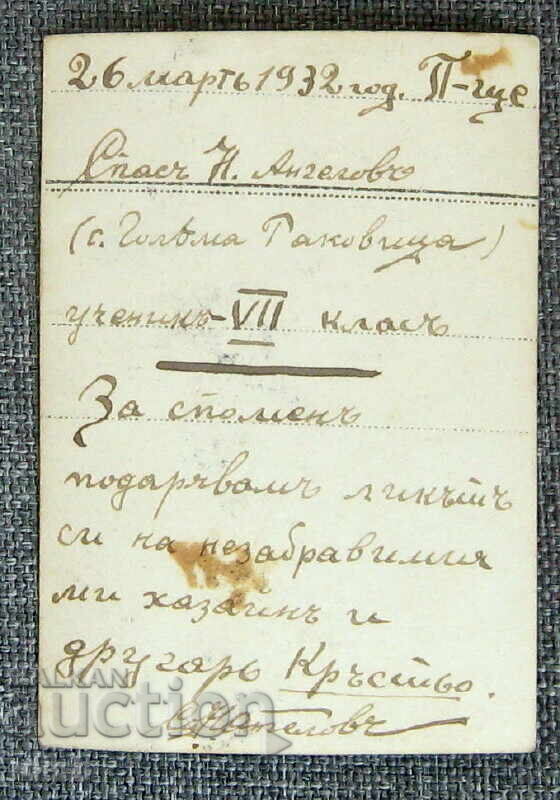 26 мартъ 1932 год. П-ще
Спасъ Н. Ангеловъ
(с. Голѣма Раковица)
ученикъ - VII класъ
За споменъ
подарявамъ ликътъ
си на незабравимия
ми хазаинъ и
другарь Кръстьо.
Ангеловъ
BALKAN
auction